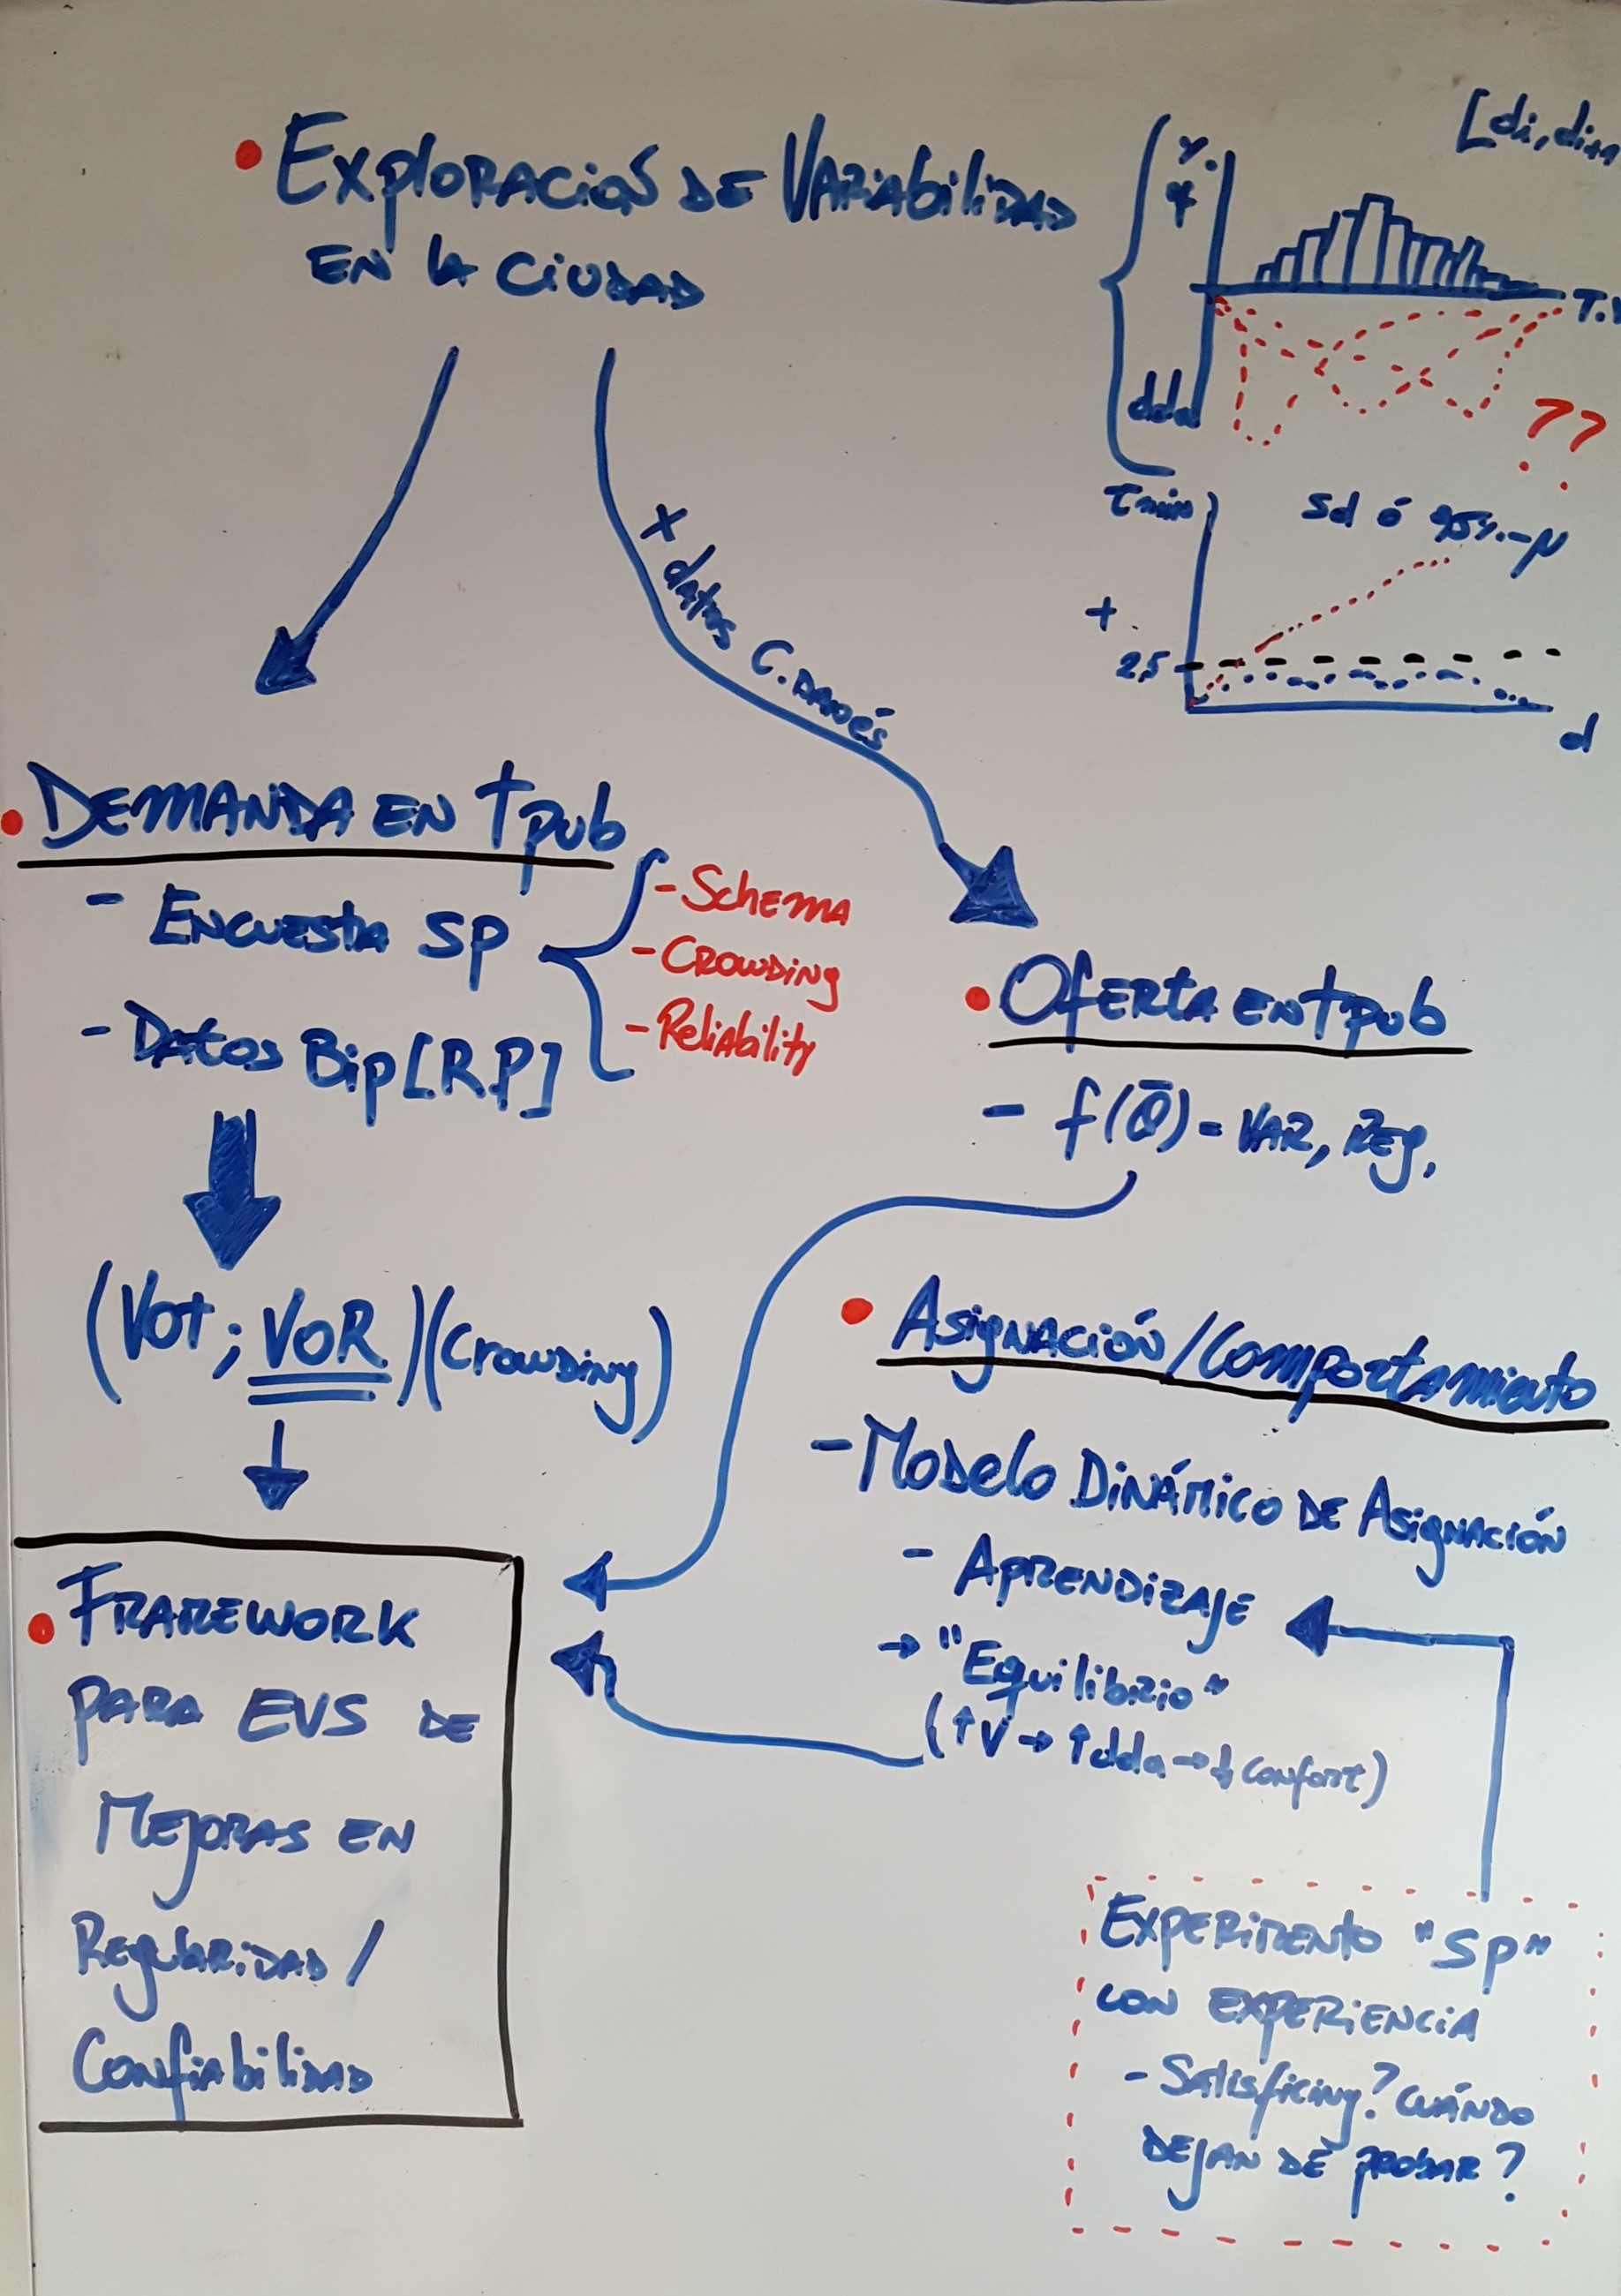 • Exploración de Variabilidad
en la Ciudad
[di, di+1
%
q
T.V
dda
??
τmin
sd ó 95%-μ
+
2,5
d
x datos C. Daves
• Demanda en tpub
- Encuesta SP
- Datos Bip [R.P]
- Schema
- Crowding
- Reliability
• Oferta en tpub
- f(Q̄) = Var, Reg,
(Vot; VoR)(Crowding)
• Asignación/Comportamiento
- Modelo Dinámico de Asignación
- Aprendizaje
→ "Equilibrio"
(↑V → ↑dda → ↓ confort)
• Framework
para EVS de
Mejoras en
Regularidad /
Confiabilidad
Experimento "SP"
con experiencia
- Satisficing? Cuándo
dejan de probar?